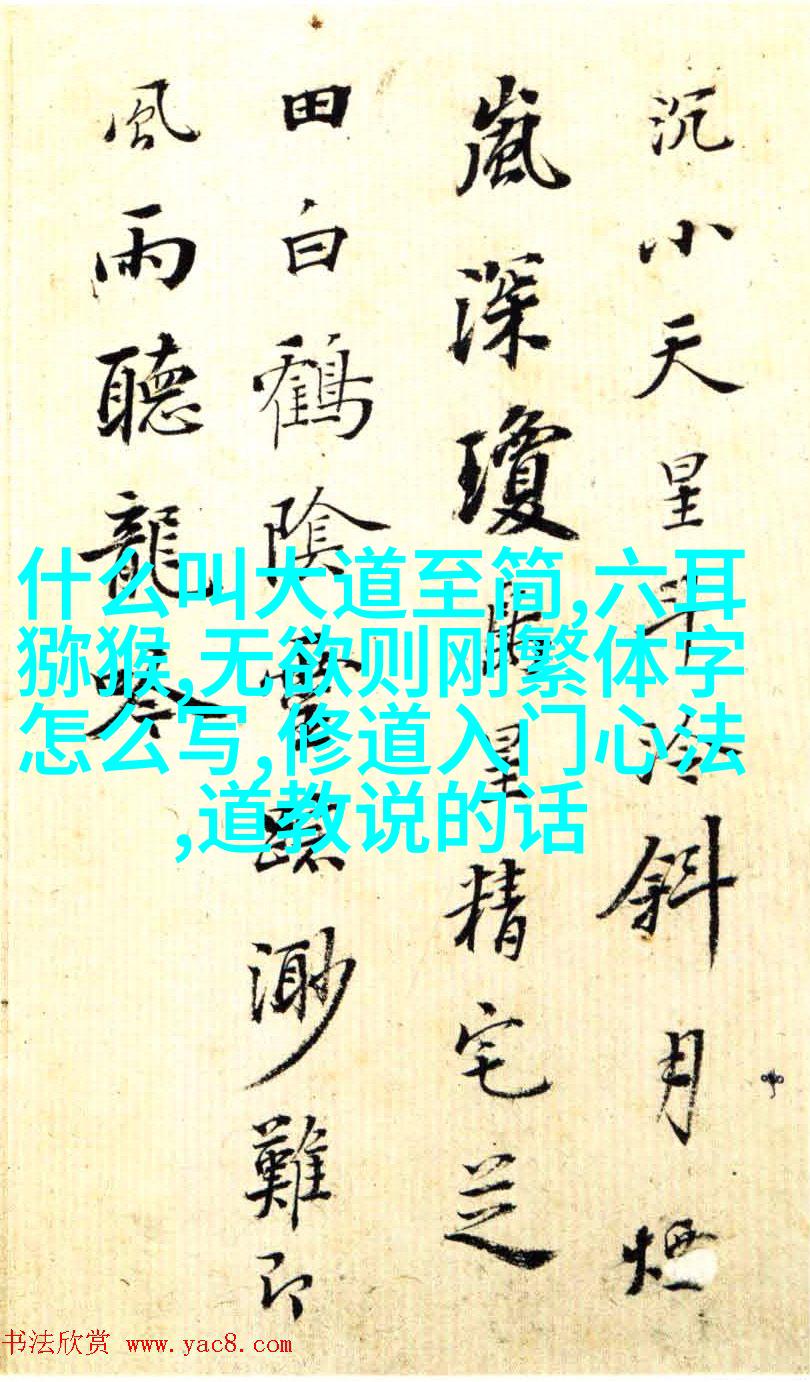 沉小天星斗冷斜月煙
嵐深瓊扃星精宅芝
田白鶴陰雲路渺難即
風雨聽龍吟
什么叫大道至简,六耳
猕猴,无欲则刚繁体字
怎么写,修道入门心法
,道教说的话
书法欣赏 www.yac8.com